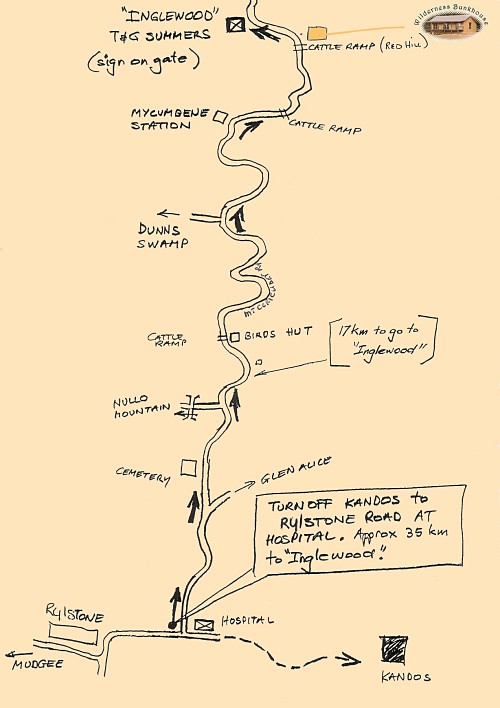 "INGLEWOOD"
T&G SUMMERS
(sign on gate)
Wilderness Bunkhouse
CATTLE RAMP (RED HILL)
MYCUMBENE
STATION
CATTLE RAMP
DUNNS
SWAMP
CATTLE
RAMP
BIRDS HUT
17km to go to
"Inglewood"
NULLO
MOUNTAIN
CEMETERY
GLEN ALICE
TURN OFF KANDOS to
RYlSTONE ROAD AT
HOSPITAL. Approx 35 km
to "Inglewood".
RylSTONE
HOSPITAL
MUDGEE
KANDOS